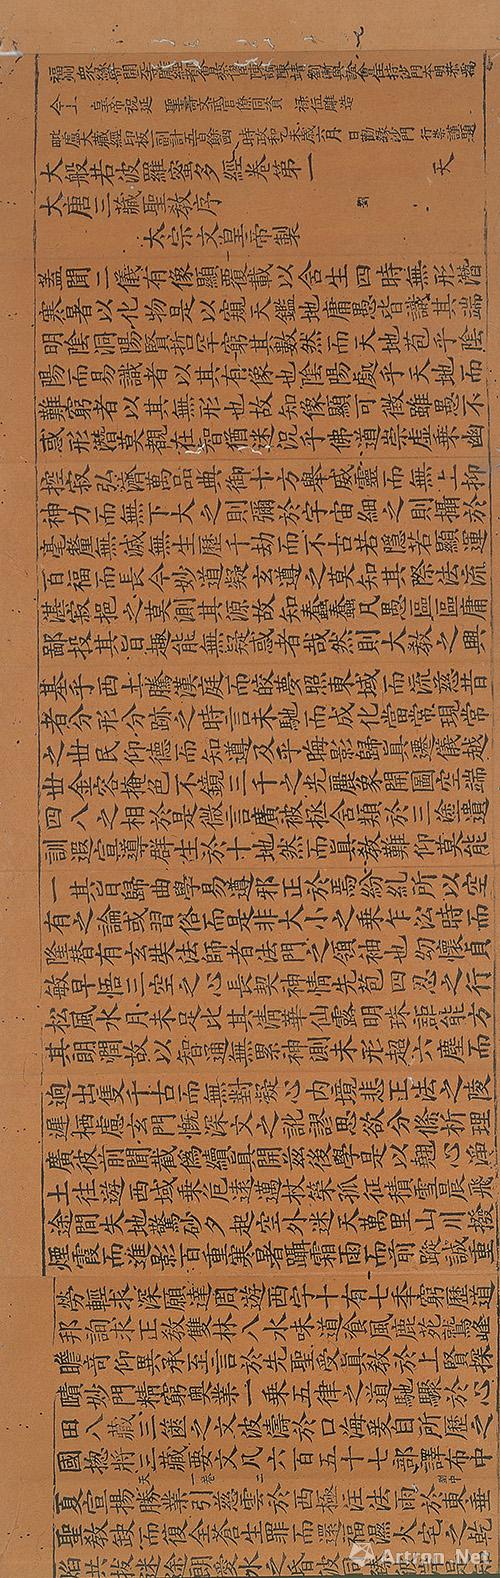 福州眾緣寄開元寺雕經都會蔡俊臣陳詢陳靖劉漸與證會住持沙門本明恭為
今上 皇帝祝延 聖壽文武官僚同資 祿位雕造
毗盧大藏經印板一副計五百餘函 時政和乙未歲六月 日勸緣沙門 行崇謹題
大般若波羅蜜多經卷第一 天
大唐三藏聖教序
太宗文皇帝製
蓋聞二儀有像顯覆載以含生四時無形潛
寒暑以化物是以窺天鑑地庸愚皆識其端
明陰洞陽賢哲罕窮其數然而天地苞乎陰
陽而易識者以其有像也陰陽處乎天地而
難窮者以其無形也故知像顯可徵雖愚不
惑形潛莫覩在智猶迷況乎佛道崇虛乗幽
控寂弘濟萬品典御十方舉威靈而無上抑
神力而無下大之則彌於宇宙細之則攝於
毫釐無滅無生歷千劫而不古若隱若顯運
百福而長今妙道凝玄遵之莫知其際法流
湛寂挹之莫測其源故知蠢蠢凡愚區區庸
鄙投其旨趣能無疑惑者哉然則大教之興
基乎西土騰漢庭而皎夢照東域而流慈昔
者分形分跡之時言未馳而成化當常現常
之世民仰德而知遵及乎晦影歸真遷儀越
世金容掩色不鏡三千之光麗象開圖空端
四八之相於是微言廣被拯含類於三途遺
訓遐宣導群生於十地然而真教難仰莫能
一其旨歸曲學易遵邪正於焉紛糺所以空
有之論或習俗而是非大小之乗乍沿時而
隆替有玄奘法師者法門之領袖也幼懷貞
敏早悟三空之心長契神情先苞四忍之行
松風水月未足比其清華仙露明珠詎能方
其朗潤故以智通無累神測未形超六塵而
迥出隻千古而無對凝心內境悲正法之陵
遲栖慮玄門慨深文之訛謬思欲分條析理
廣彼前聞截偽續真開茲後學是以翹心淨
土往遊西域乗危遠邁杖策孤征積雪晨飛
途間失地驚砂夕起空外迷天萬里山川撥
煙霞而進影百重寒暑躡霜雨而前蹤誠重
勞輕求深願達周遊西宇十有七年窮歷道
邦詢求正教雙林八水味道飡風鹿苑鷲峰
瞻奇仰異承至言於先聖受真教於上賢探
賾妙門精窮奧業一乗五律之道馳驟於心
田八藏三篋之文波濤於口海爰自所歷之
國揔將三藏要文凡六百五十七部譯布中
天 一卷 二
夏宣揚勝業引慈雲於西極注法雨於東垂
聖教缺而復全蒼生罪而還福濕火宅之乾
焰共拔迷途朗愛水之昏波同臻彼岸
Artron.Net